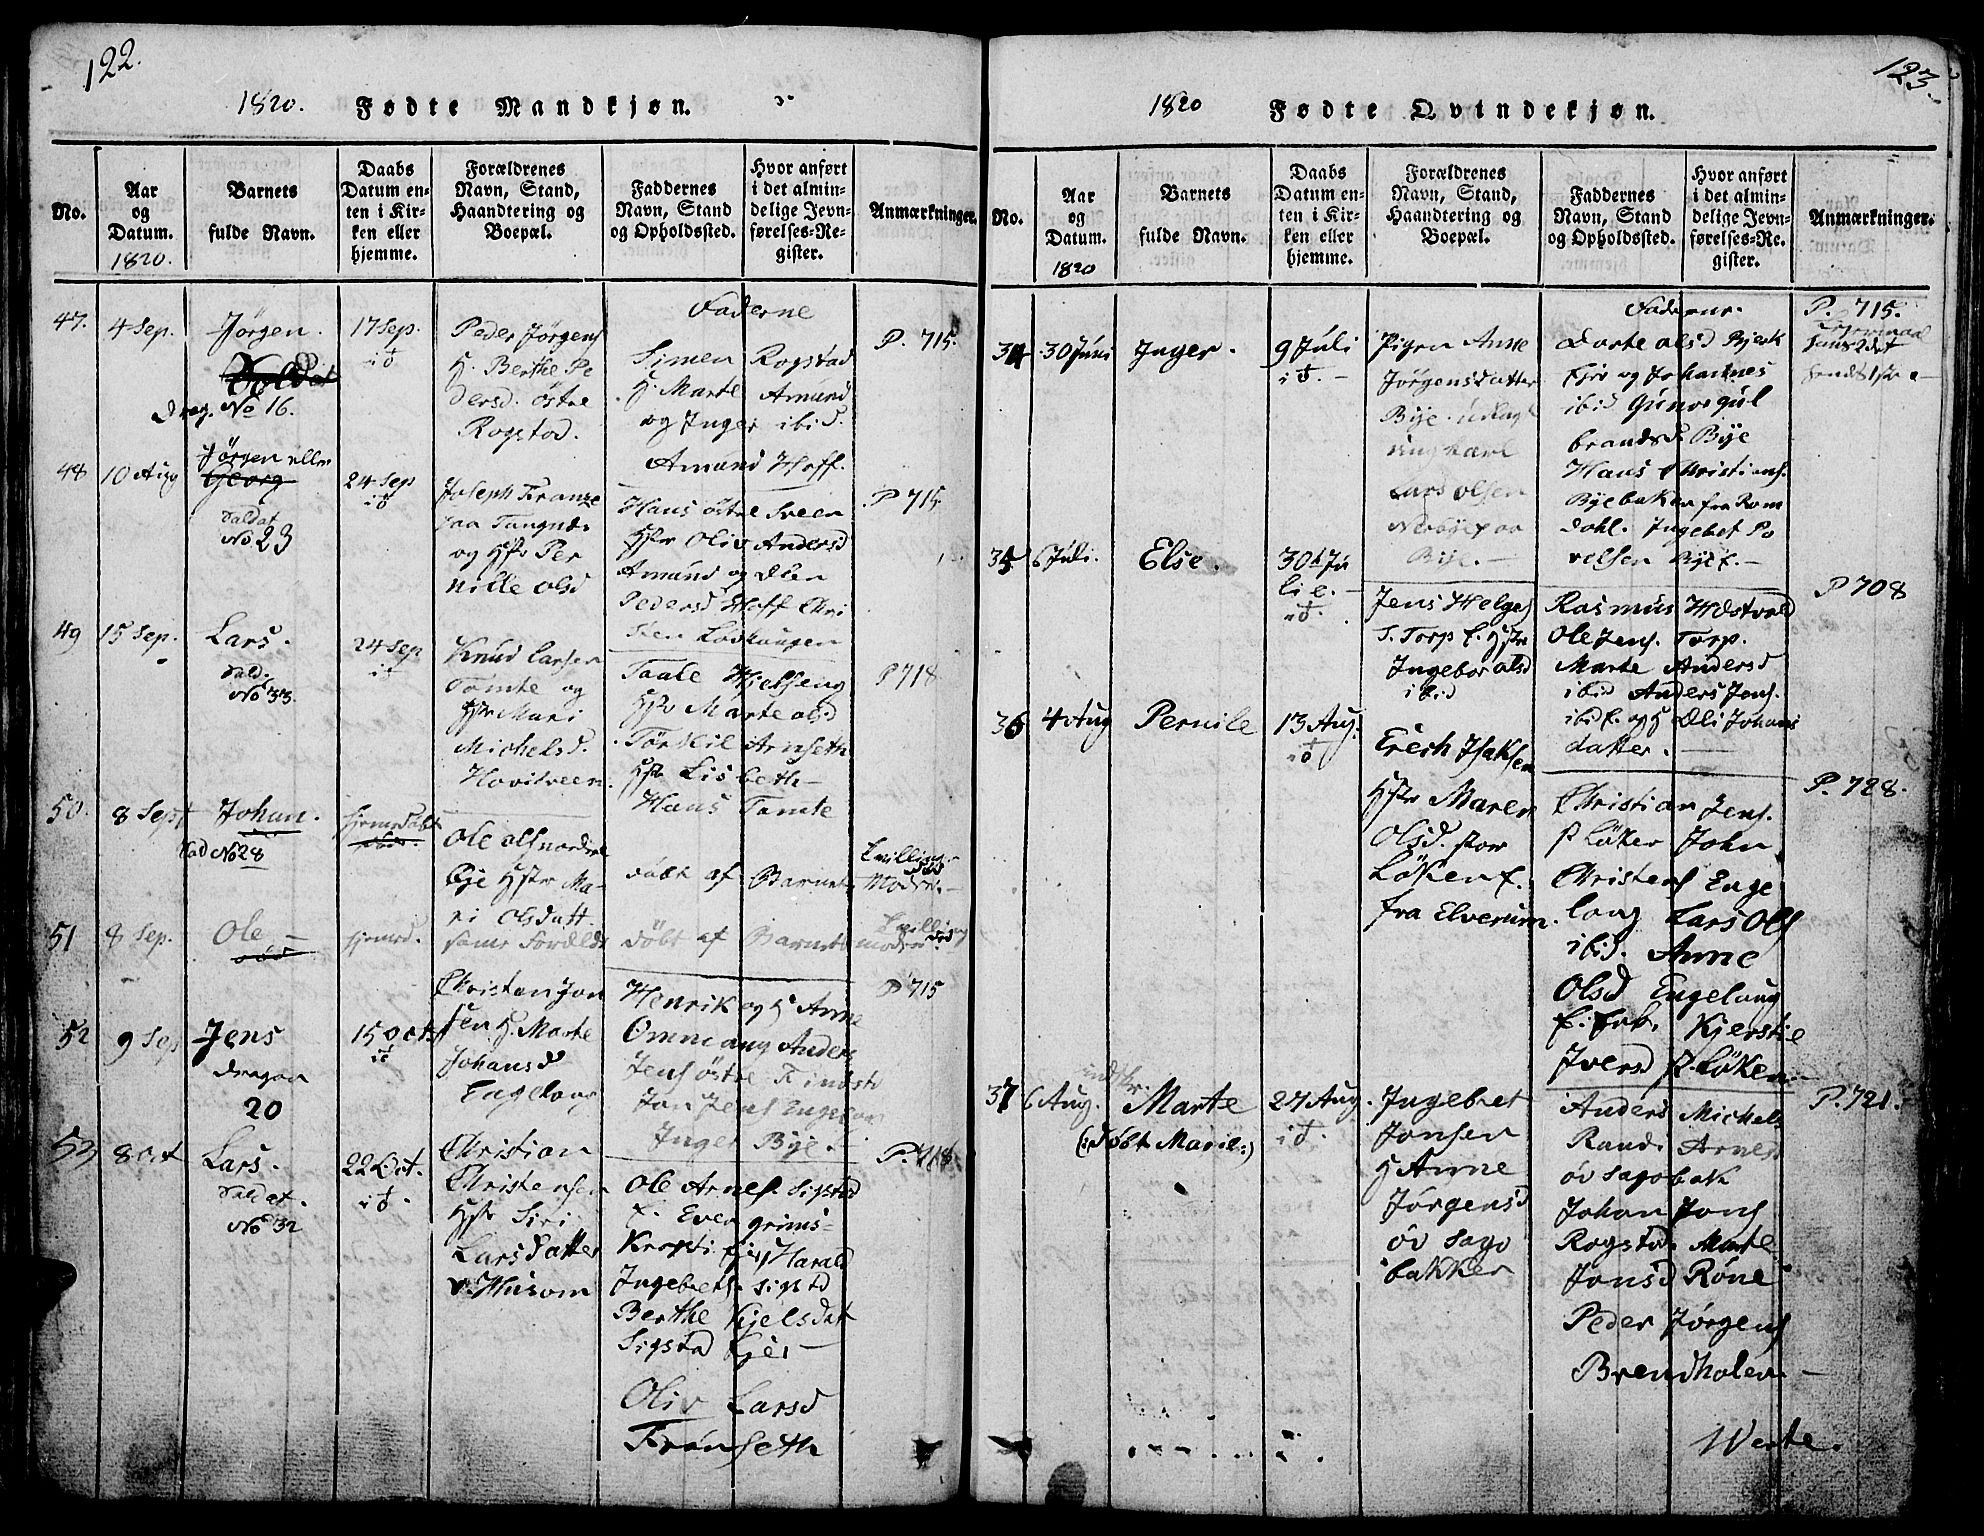 122.
1820. Fødte Mandkjøn.
No.
Aar
og
Datum.
1820.
Barnets
fulde Navn.
Daabs
Datum en-
ten i Kir-
ken eller
hjemme.
Forældrenes
Navn, Stand,
Haandtering og
Boepæl.
Faddernes
Navn, Stand
og Opholdssted.
Hvor anført
i det almin-
delige Jevn-
førelses-Re-
gister.
Anmærkninger.
47.
4 Sep.
Jørgen.
Soldat
Drag. No 16.
17 Sep.
Peder Jørgens
H. Berthe Pe
dersd. östre
Rogstad.
Faderne
Simen Rogstad
H Marte Amund
og Inger ibid.
Amund Hoff.
P. 715.
48
10 Aug
Jørgen eller
Georg
Saldat
No 23
24 Sep
Joseph Franze
paa Tangnes
og Hstr Per
nille olsd
Hans östre Sveen
Hstr Oliv Andersd
Amund og Olea
Pedersd Hoff Chri
P 715
49
15 Sep.
Lars.
Sald.
No 33.
24 Sep
Knud Larsen
Tomte og
Hstr Mari
Michelsd.
Hovilveen
Taale Hielseng
Hstr Marte olsd
Törkil Arnseth
Hstr Lisbeth
Hans Tomte
P 718
50.
8 Sept
Johan.
Sad No 28
hjemdöbt
Ole ols nordre
Bye Hstr Ma-
ri Olsdatt.
döbt af Barnets
Moder.
Tvilling
51
8 Sep.
Ole
død
hjemd.
samme Foreldre
döbt af Barnets
moder
Tvilling
52
9 Sep
Jens
dragon
20
15 Oct
Christen Jon
sen H. Marte
Johansd
Engelaug
Henrik og H Anne
Ommang Anders
Jens östre Findst
Jon Jens Engelau
Inger Bye
P 715
53
8 Oct
Lars.
Saldat.
No 32
22 Oct.
Christian
Christensen
Hstr Siri
Larsdatter
v. Husom
Ole Arnes. Sigstad
f. Even Grims-
Krosti Ejer Harald
Ingebrets. Sigstd
Berthe Kjelsdat
Sigstad Ejer
Oliv Larsd
Frönseth
P. 718.
123.
1820 Fødte Qvindekjøn.
No.
Aar
og
Datum.
1820
Barnets
fulde Navn.
Daabs
Datum en-
ten i Kir-
ken eller
hjemme.
Forældrenes
Navn, Stand,
Haandtering og
Boepæl.
Faddernes
Navn, Stand
og Opholdssted.
Hvor anført
i det almin-
delige Jevn-
førelses-Re-
gister.
Anmærkninger.
34
30 Juni
Inger.
9 Juli
Pigen Anne
Jörgensdatter
Bye. udlagt
ungkarl
Lars Olsen
Nordbye paa
Bye.
Faderne.
Dorte olsd Bjerk
Ejer og Johannes
ibid Gunor Gul
brandsd Bye
Hans Christians.
Byebaken fra Rom
dahl. Ingebet Po
velsen Bye
P. 715.
35
6 Juli.
Else.
30 Ju
li
Jens Helges
S. Torp f. Hstr
Ingebor olsd
ibid
Rasmus Westvold
Ole Jens. Torp.
Marte Andersd
ibid Anders Jens.
ibid f. og H Oli Johans
datter.
P 708
36
4 Aug
Pernile
13 Aug.
Erich Isaksen
Hstr Maren
Olsd. stor
Löken f.
fra Elverum.
Christian Jens.
st Löken John
Christens Enge
laug Lars Ols
ibid. Anne
Olsd Engelaug
Kjerstie
Iversd st. Löken
P. 728.
37
6 Aug.
Marte
(: döbt Marie :)
27 Aug.
Ingebret
Jonsen
H Anne
Jörgensd
öv Sago
bakken
Anders Michels
Randi Arnesd
öv Sagobak
Johan Jons
Rogstad. Marte
Jonsd Röne
Peder Jörgens
Brendholen
P. 721.
Verte.